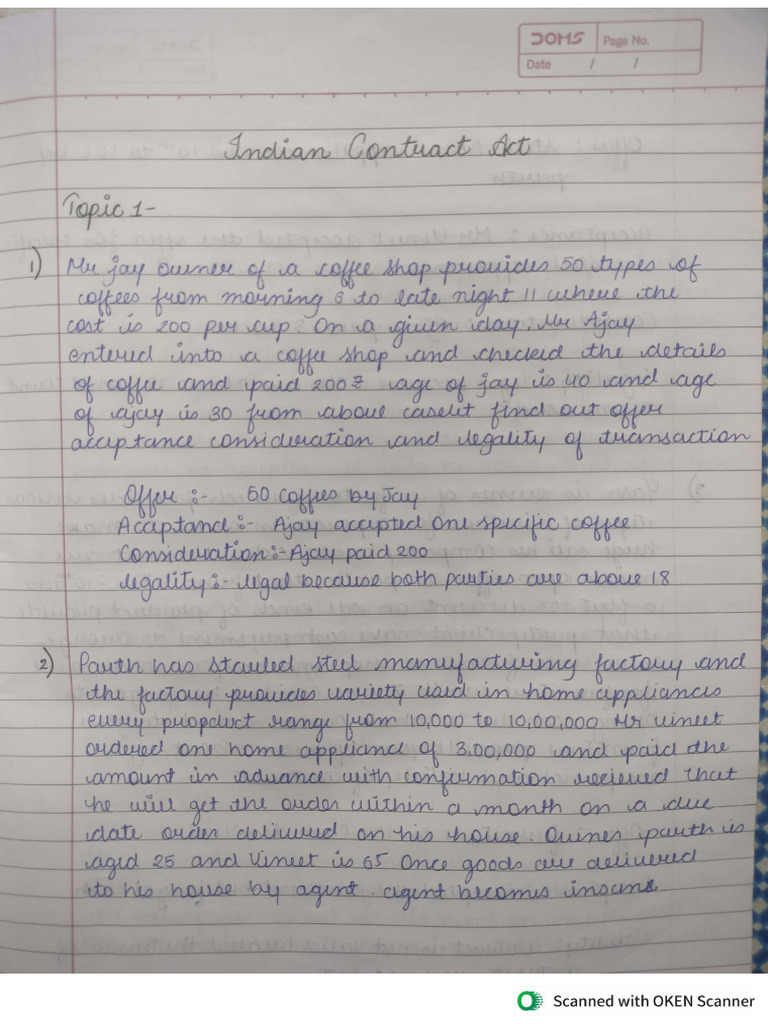 DOMS Page No.
Date / /
Indian Contract Act
Topic 1-
1) Mr jay owner of a coffee shop provides 50 types of
coffees from morning 6 to late night 11 where the
cost is 200 per cup. On a given day, Mr Ajay
entered into a coffee shop and checked the details
of coffee and paid 200₹ age of jay is 40 and age
of ajay is 30 from above caselet find out offer
acceptance consideration and legality of transaction
Offer :- 50 coffees by Jay
Acceptand :- Ajay accepted one specific coffee
Consideration :- Ajay paid 200
legality :- legal because both parties are above 18
2) Parth has started steel manufacturing factory and
the factory provides variety used in home appliances
every propduct range from 10,000 to 10,00,000 Mr vineet
ordered one home appliand of 3,00,000 and paid the
amount in advance with confirmation recieved that
he will get the order within a month on a due
date order delivered on his house. Owner parth is
aged 25 and Vineet is 65 Once goods are delivered
to his house by agent. agent becomes insane
Scanned with OKEN Scanner